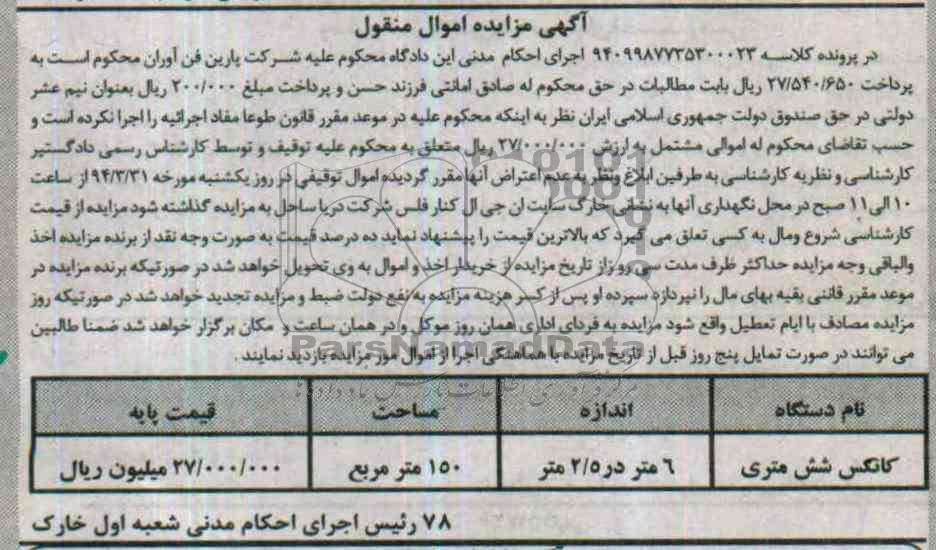 آگهی مزایده اموال منقول
در پرونده کلاسه ۹۴۰۹۹۸۷۷۳۵۳۰۰۰۲۳ اجرای احکام مدنی این دادگاه محکوم علیه شرکت پارین فن آوران محکوم است به
پرداخت ۲۷/۵۴۰/۶۵۰ ریال بابت مطالبات در حق محکوم له صادق امانتی فرزند حسن و پرداخت مبلغ ۲۰۰/۰۰۰ ریال بعنوان نیم عشر
دولتی در حق صندوق دولت جمهوری اسلامی ایران نظر به اینکه محکوم علیه در موعد مقرر قانون طوعا مفاد اجرائیه را اجرا نکرده است و
حسب تقاضای محکوم له اموالی مشتمل به ارزش ۲۷/۰۰۰/۰۰۰ ریال متعلق به محکوم علیه توقیف و توسط کارشناس رسمی دادگستیر
کارشناسی و نظریه کارشناسی به طرفین ابلاغ ونظر به عدم اعتراض آنها مقرر گردیده اموال توقیفی در روز یکشنبه مورخه ۹۴/۳/۳۱ از ساعت
۱۰ الی ۱۱ صبح در محل نگهداری آنها به نشانی خارگ سایت ان جی ال کنار فلس شرکت دریا ساحل به مزایده گذاشته شود مزایده از قیمت
کارشناسی شروع ومال به کسی تعلق می گیرد که بالاترین قیمت را پیشنهاد نماید ده درصد قیمت به صورت وجه نقد از برنده مزایده اخذ
والباقی وجه مزایده حداکثر ظرف مدت سی رو زاز تاریخ مزایده از خریدار اخذ و اموال به وی تحویل خواهد شد در صورتیکه برنده مزایده در
موعد مقرر قاننی بقیه بهای مال را نپردازد سپرده او پس از کسر هزینه مزایده به نفع دولت ضبط و مزایده تجدید خواهد شد در صورتیکه روز
مزایده مصادف با ایام تعطیل واقع شود مزایده به فردای اداری همان روز موکل و در همان ساعت و مکان برگزار خواهد شد ضمنا طالبین
می توانند در صورت تمایل پنج روز قبل از تاریخ مزایده با هماهنگی اجرا از اموال مور مزایده بازدید نمایند .
ParsNamadData
نام دستگاه اندازه مساحت قیمت پایه
کانکس شش متری ۶ متر در ۲/۵ متر ۱۵۰ متر مربع ۲۷/۰۰۰/۰۰۰ میلیون ریال
۷۸ رئیس اجرای احکام مدنی شعبه اول خارک